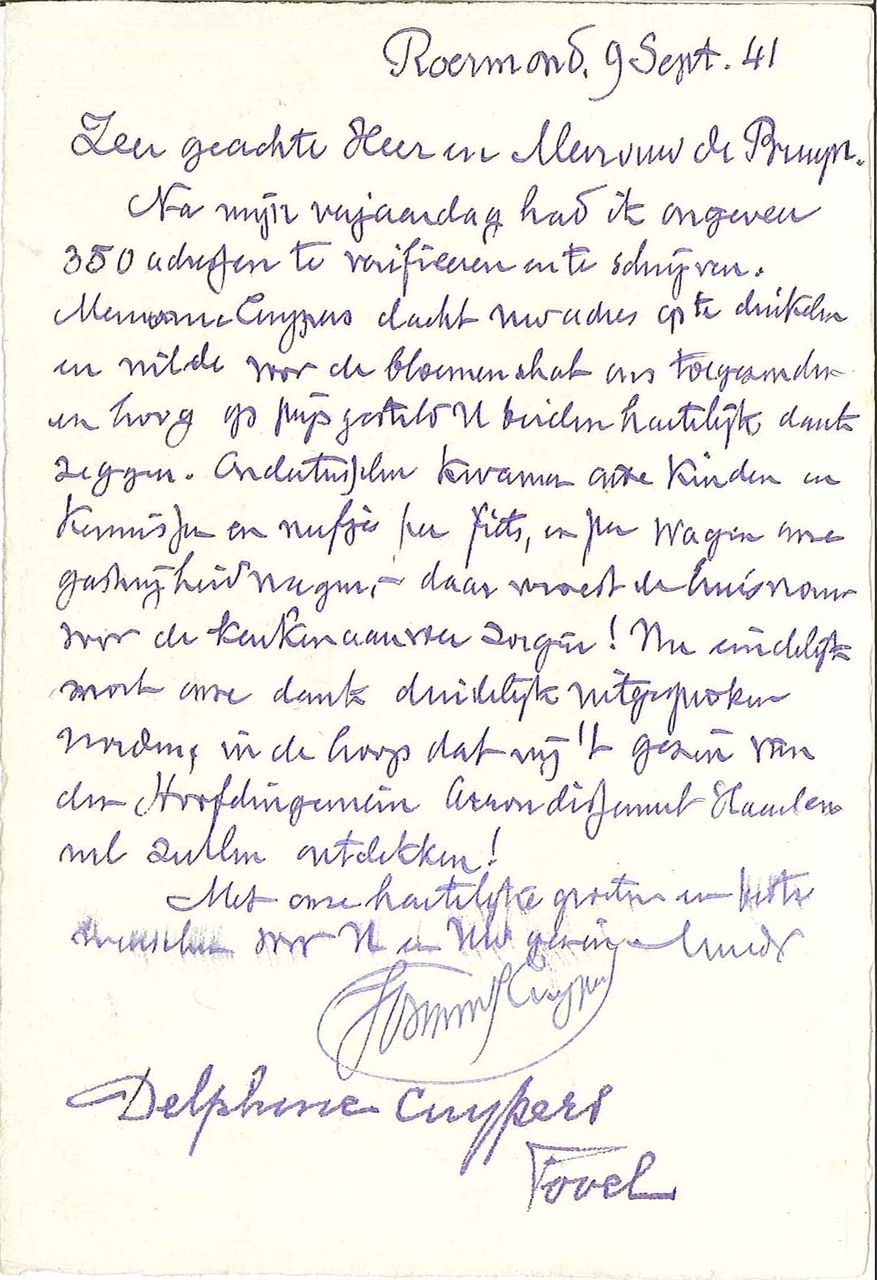 Roermond, 9 Sept. 41
Zeer geachte Heer en Mevrouw de Bruyn.
Na mijn verjaardag had ik ongeveer
350 adressen te verifieeren en te schrijven.
Mevrouw Cuypers dacht uw adres op te duikelen
en wilde voor de bloemenschat ons toegezonden
en hoog op prijs gesteld U beiden hartelijk dank
zeggen. Ondertusschen kwamen onze kinderen en
kennissen en neefjes per fiets, en per wagen onze
gastvrijheid vragen, – daar moest de huisvrouw
voor de keukenaanvoer zorgen! Nu eindelijk
moet onze dank duidelijk uitgesproken
worden, in de hoop dat wij 't gezin van
den Hoofdingenieur Arrondissement Haarlem
wel zullen ontdekken!
Met onze hartelijke groeten en beste
wenschen voor U en Uw gezin
Cuypers
Delphine Cuypers
Povel